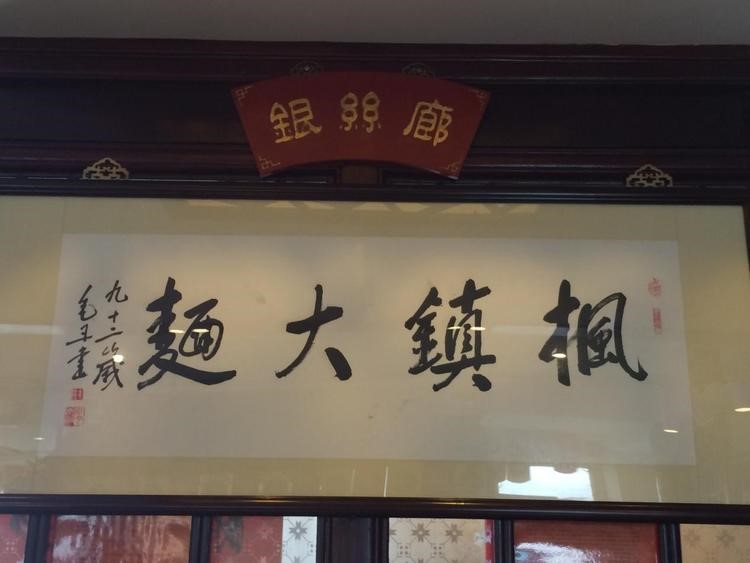 銀絲廊
楓鎮大麵
九十二歲
毛書